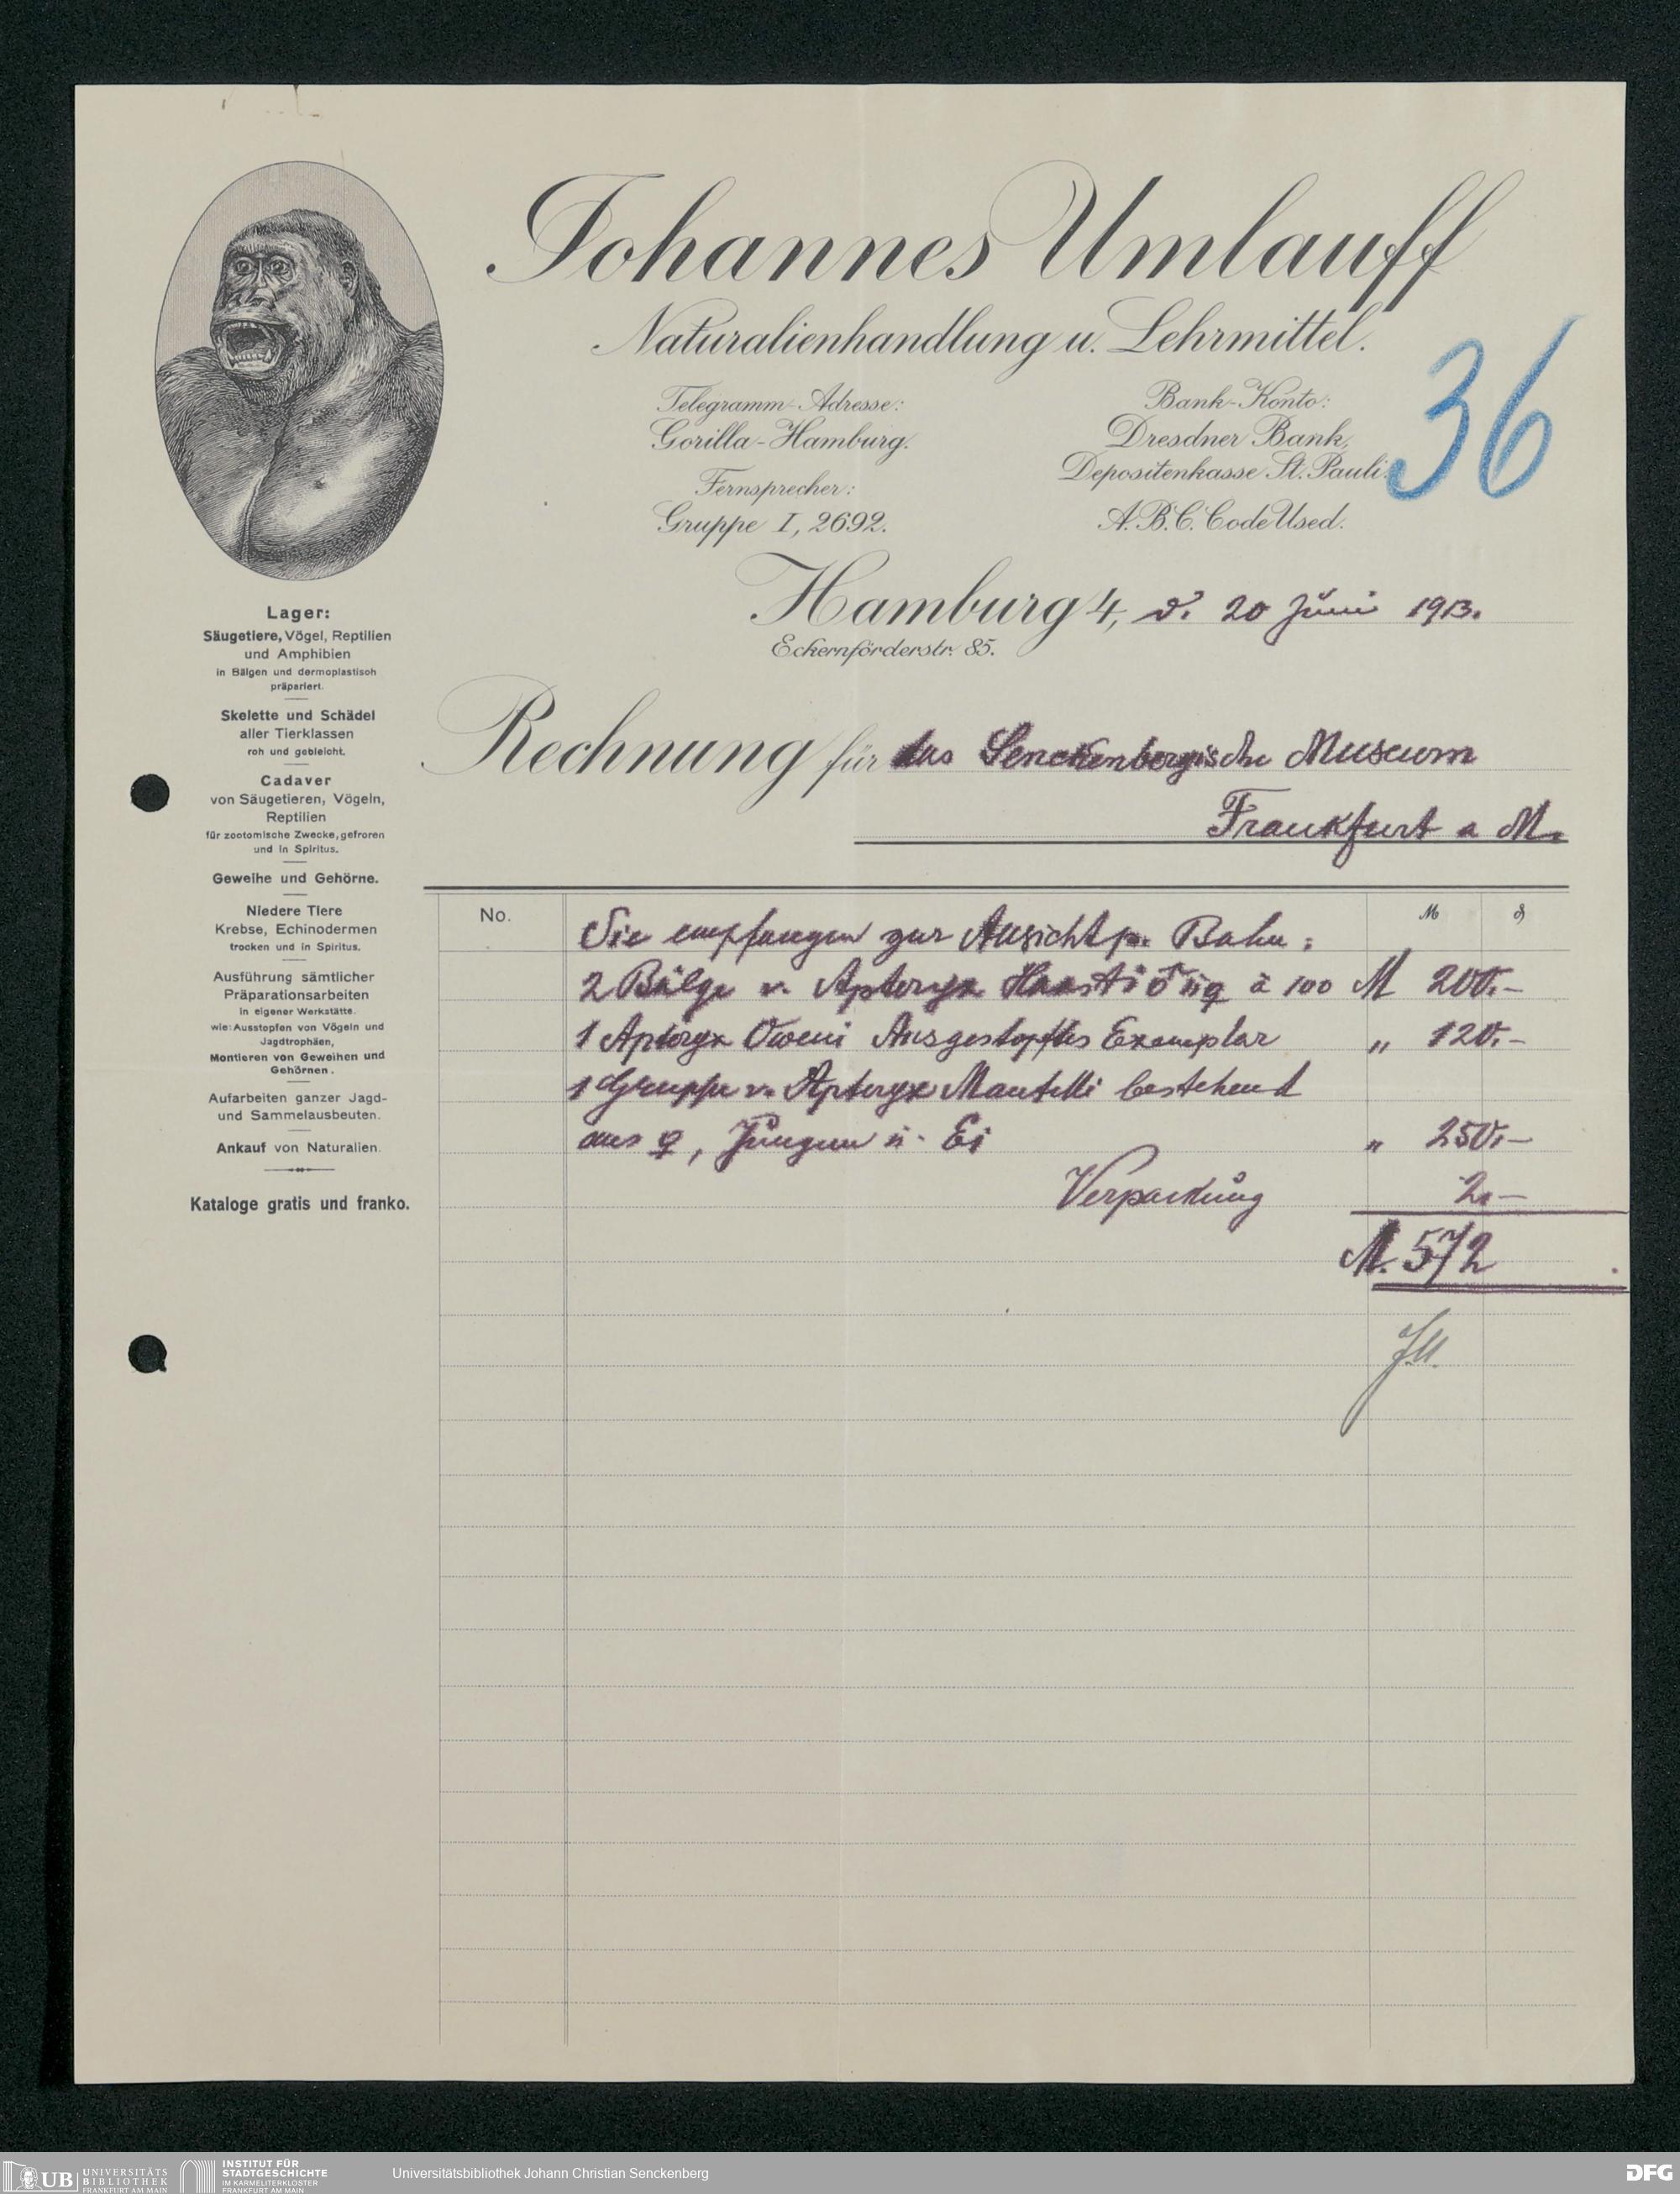 Johannes Umlauff
Naturalienhandlung u. Lehrmittel.
Telegramm-Adresse:
Gorilla-Hamburg.
Fernsprecher:
Gruppe I, 2692.
Bank-Konto:
Dresdner Bank,
Depositenkasse St. Pauli.
A.B.C. Code Used.
36
Hamburg 4, d. 20 Juni 1913.
Eckernförderstr. 85.
Rechnung für das Senckenbergische Museum
Frankfurt a M.
Lager:
Säugetiere, Vögel, Reptilien
und Amphibien
in Bälgen und dermoplastisch
präpariert.
Skelette und Schädel
aller Tierklassen
roh und gebleicht.
Cadaver
von Säugetieren, Vögeln,
Reptilien
für zootomische Zwecke, gefroren
und in Spiritus.
Geweihe und Gehörne.
Niedere Tiere
Krebse, Echinodermen
trocken und in Spiritus.
Ausführung sämtlicher
Präparationsarbeiten
in eigener Werkstätte.
wie: Ausstopfen von Vögeln und
Jagdtrophäen,
Montieren von Geweihen und
Gehörnen.
Aufarbeiten ganzer Jagd-
und Sammelausbeuten.
Ankauf von Naturalien.
Kataloge gratis und franko.
No. M ₰
Sie empfangen zur Ansicht p. Bahn:
2 Bälge v. Apteryx Haasti ♂ ü ♀ à 100 M 200.-
1 Apteryx Oweni Ausgestopftes Exemplar " 120.-
1 Gruppe v. Apteryx Mantelli bestehend
aus ♀, Jungen u. Ei " 250.-
Verpackung 2.-
M. 572
J.U.
UB UNIVERSITÄTS
BIBLIOTHEK
FRANKFURT AM MAIN
INSTITUT FÜR
STADTGESCHICHTE
IM KARMELITERKLOSTER
FRANKFURT AM MAIN
Universitätsbibliothek Johann Christian Senckenberg
DFG